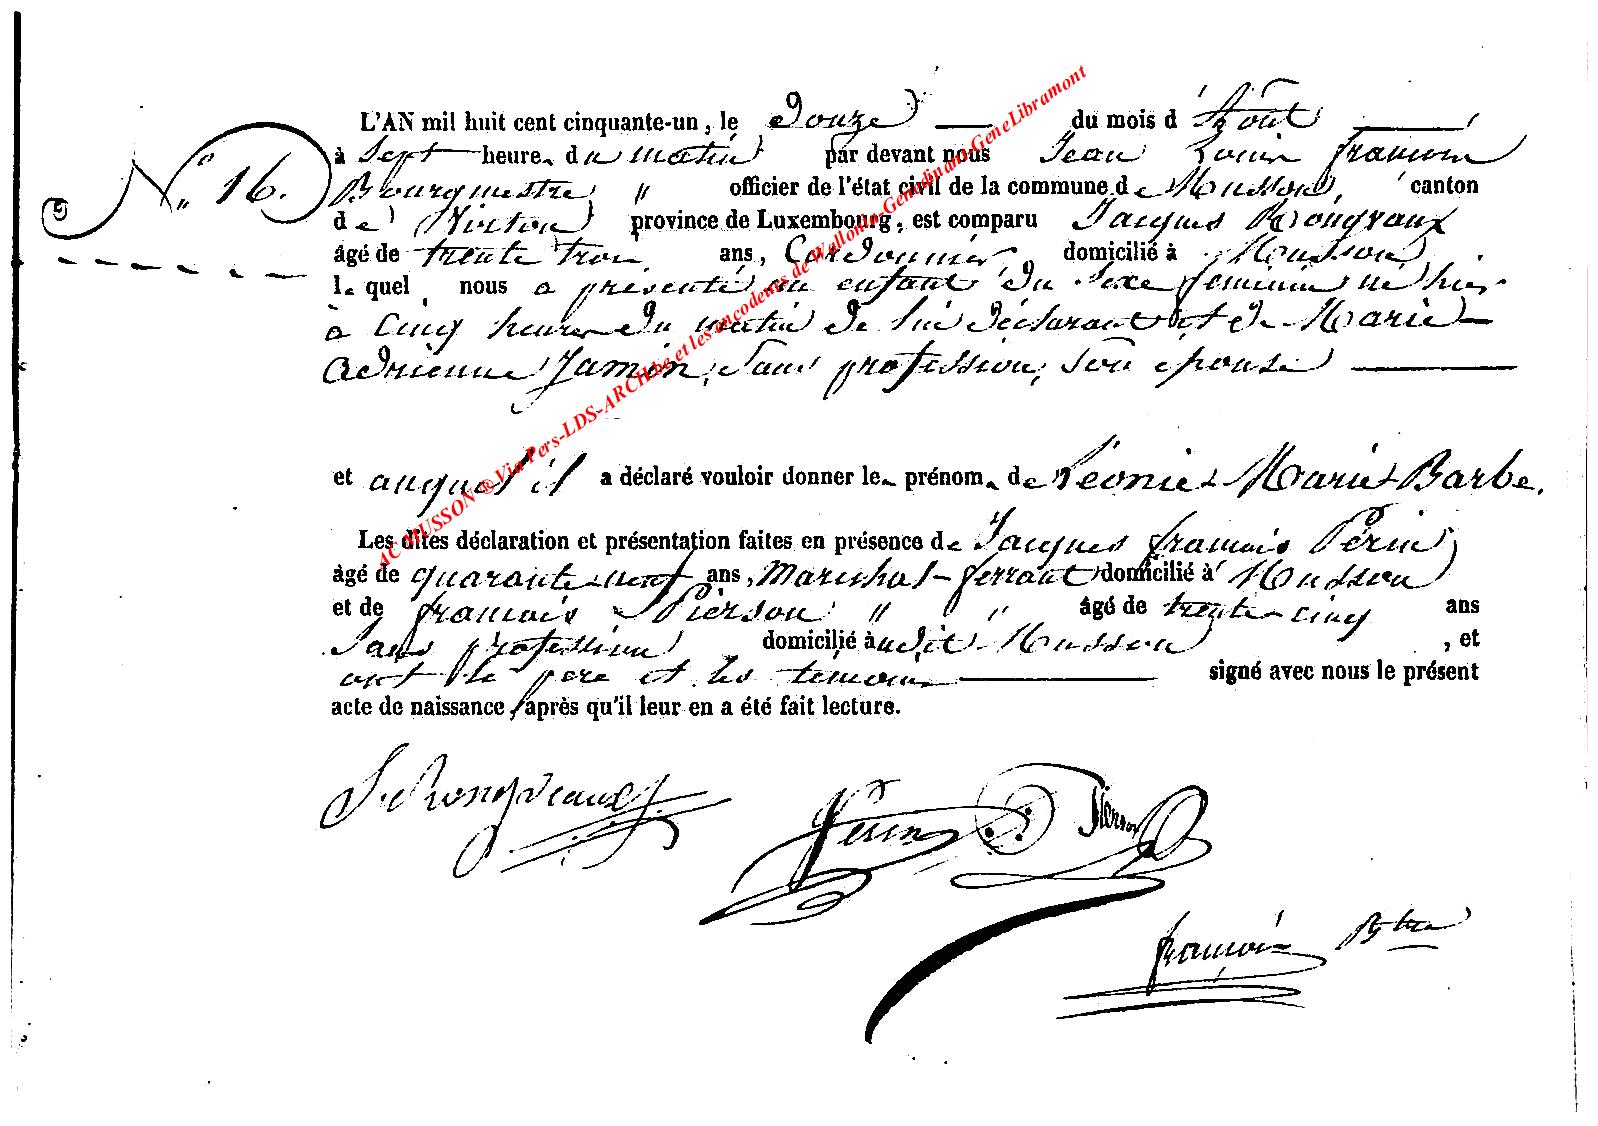 L'AN mil huit cent cinquante-un, le Douze du mois d' Août
N.° 16.
à Sept heure du matin par devant nous Jean Louis françois
Bourgmestre, " officier de l'état civil de la commune de Musson, canton
de Virton province de Luxembourg, est comparu Jacques Rongvaux
âgé de trente trois ans, Cordonnier domicilié à Musson
le quel nous a présenté un enfant du Sexe féminin né hier
à Cinq heures du matin de lui déclarant et de Marie
Adrienne Jamin, Sans profession, son épouse
et auquel il a déclaré vouloir donner le prénom de Léonie Marie Barbe.
Les dites déclaration et présentation faites en présence de Jacques françois Périn
âgé de quarante-neuf ans, Maréchal-ferrant domicilié à Musson
et de françois Pierson " " âgé de trente-cinq ans
Sans profession domicilié à udit Musson , et
ont le père et les témoins signé avec nous le présent
acte de naissance, après qu'il leur en a été fait lecture.
J. Rongveaux Perin Pierson
françois Bgtre
AC MUSSON ® Via Pers-LDS-ARCH.be et les encodeurs de Wallonia-Genedinant-GeneLibramont